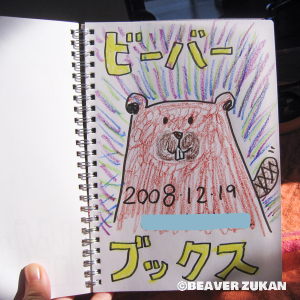 ビーバー
2008.12.19
ブックス
©BEAVER ZUKAN